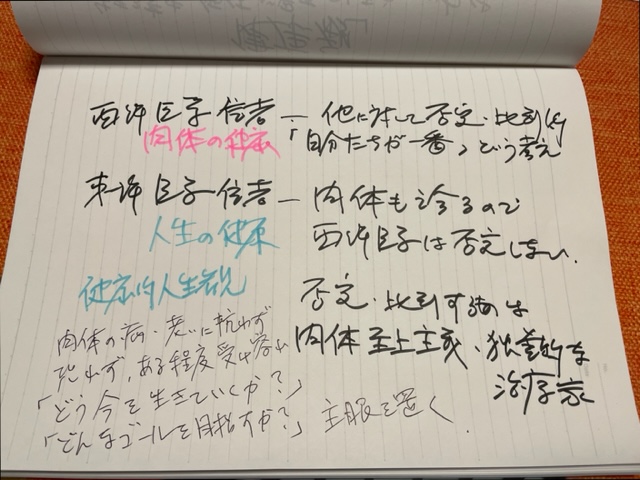 西洋医学信者 ー 他に対して否定・比判的
肉体の健康 「自分たちが一番」という考え
東洋医学信者 ー 肉体も診るので
人生の健康 西洋医学は否定しない。
健康的人生 否定・比判する
肉体の病・老いに抗わず 肉体至上主義、独善的な
恐れず、ある程度受け 治療家
「どう今を生きていくか?」
「どんなゴールを目指すか?」主眼を置く。